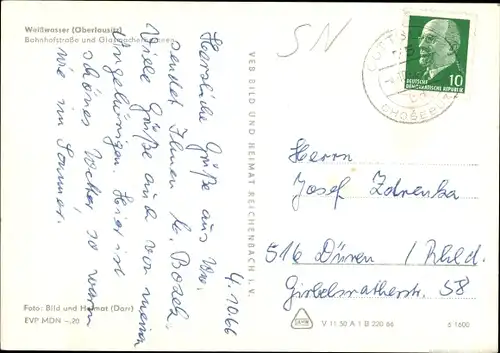 Weißwasser (Oberlausitz)
Bahnhofstraße und Glasmacherbrunnen
4.10.66
Herzliche Grüße aus Ww.
sendet Ihnen K. Bosch.
Viele Grüße auch von meinen
Angehörigen. Hier ist
schönes Wetter, so warm
wie im Sommer.
Foto: Bild und Heimat (Darr)
EVP MDN -,20
VEB BILD UND HEIMAT REICHENBACH I. V.
SN
COTTBUS
DEUTSCHE
DEMOKRATISCHE REPUBLIK
10
Herrn
Josef Zdrenka
516 Düren / Rhld.
Girbelsratherstr. 58
V 11 50 A 1 B 220/66
6 1600